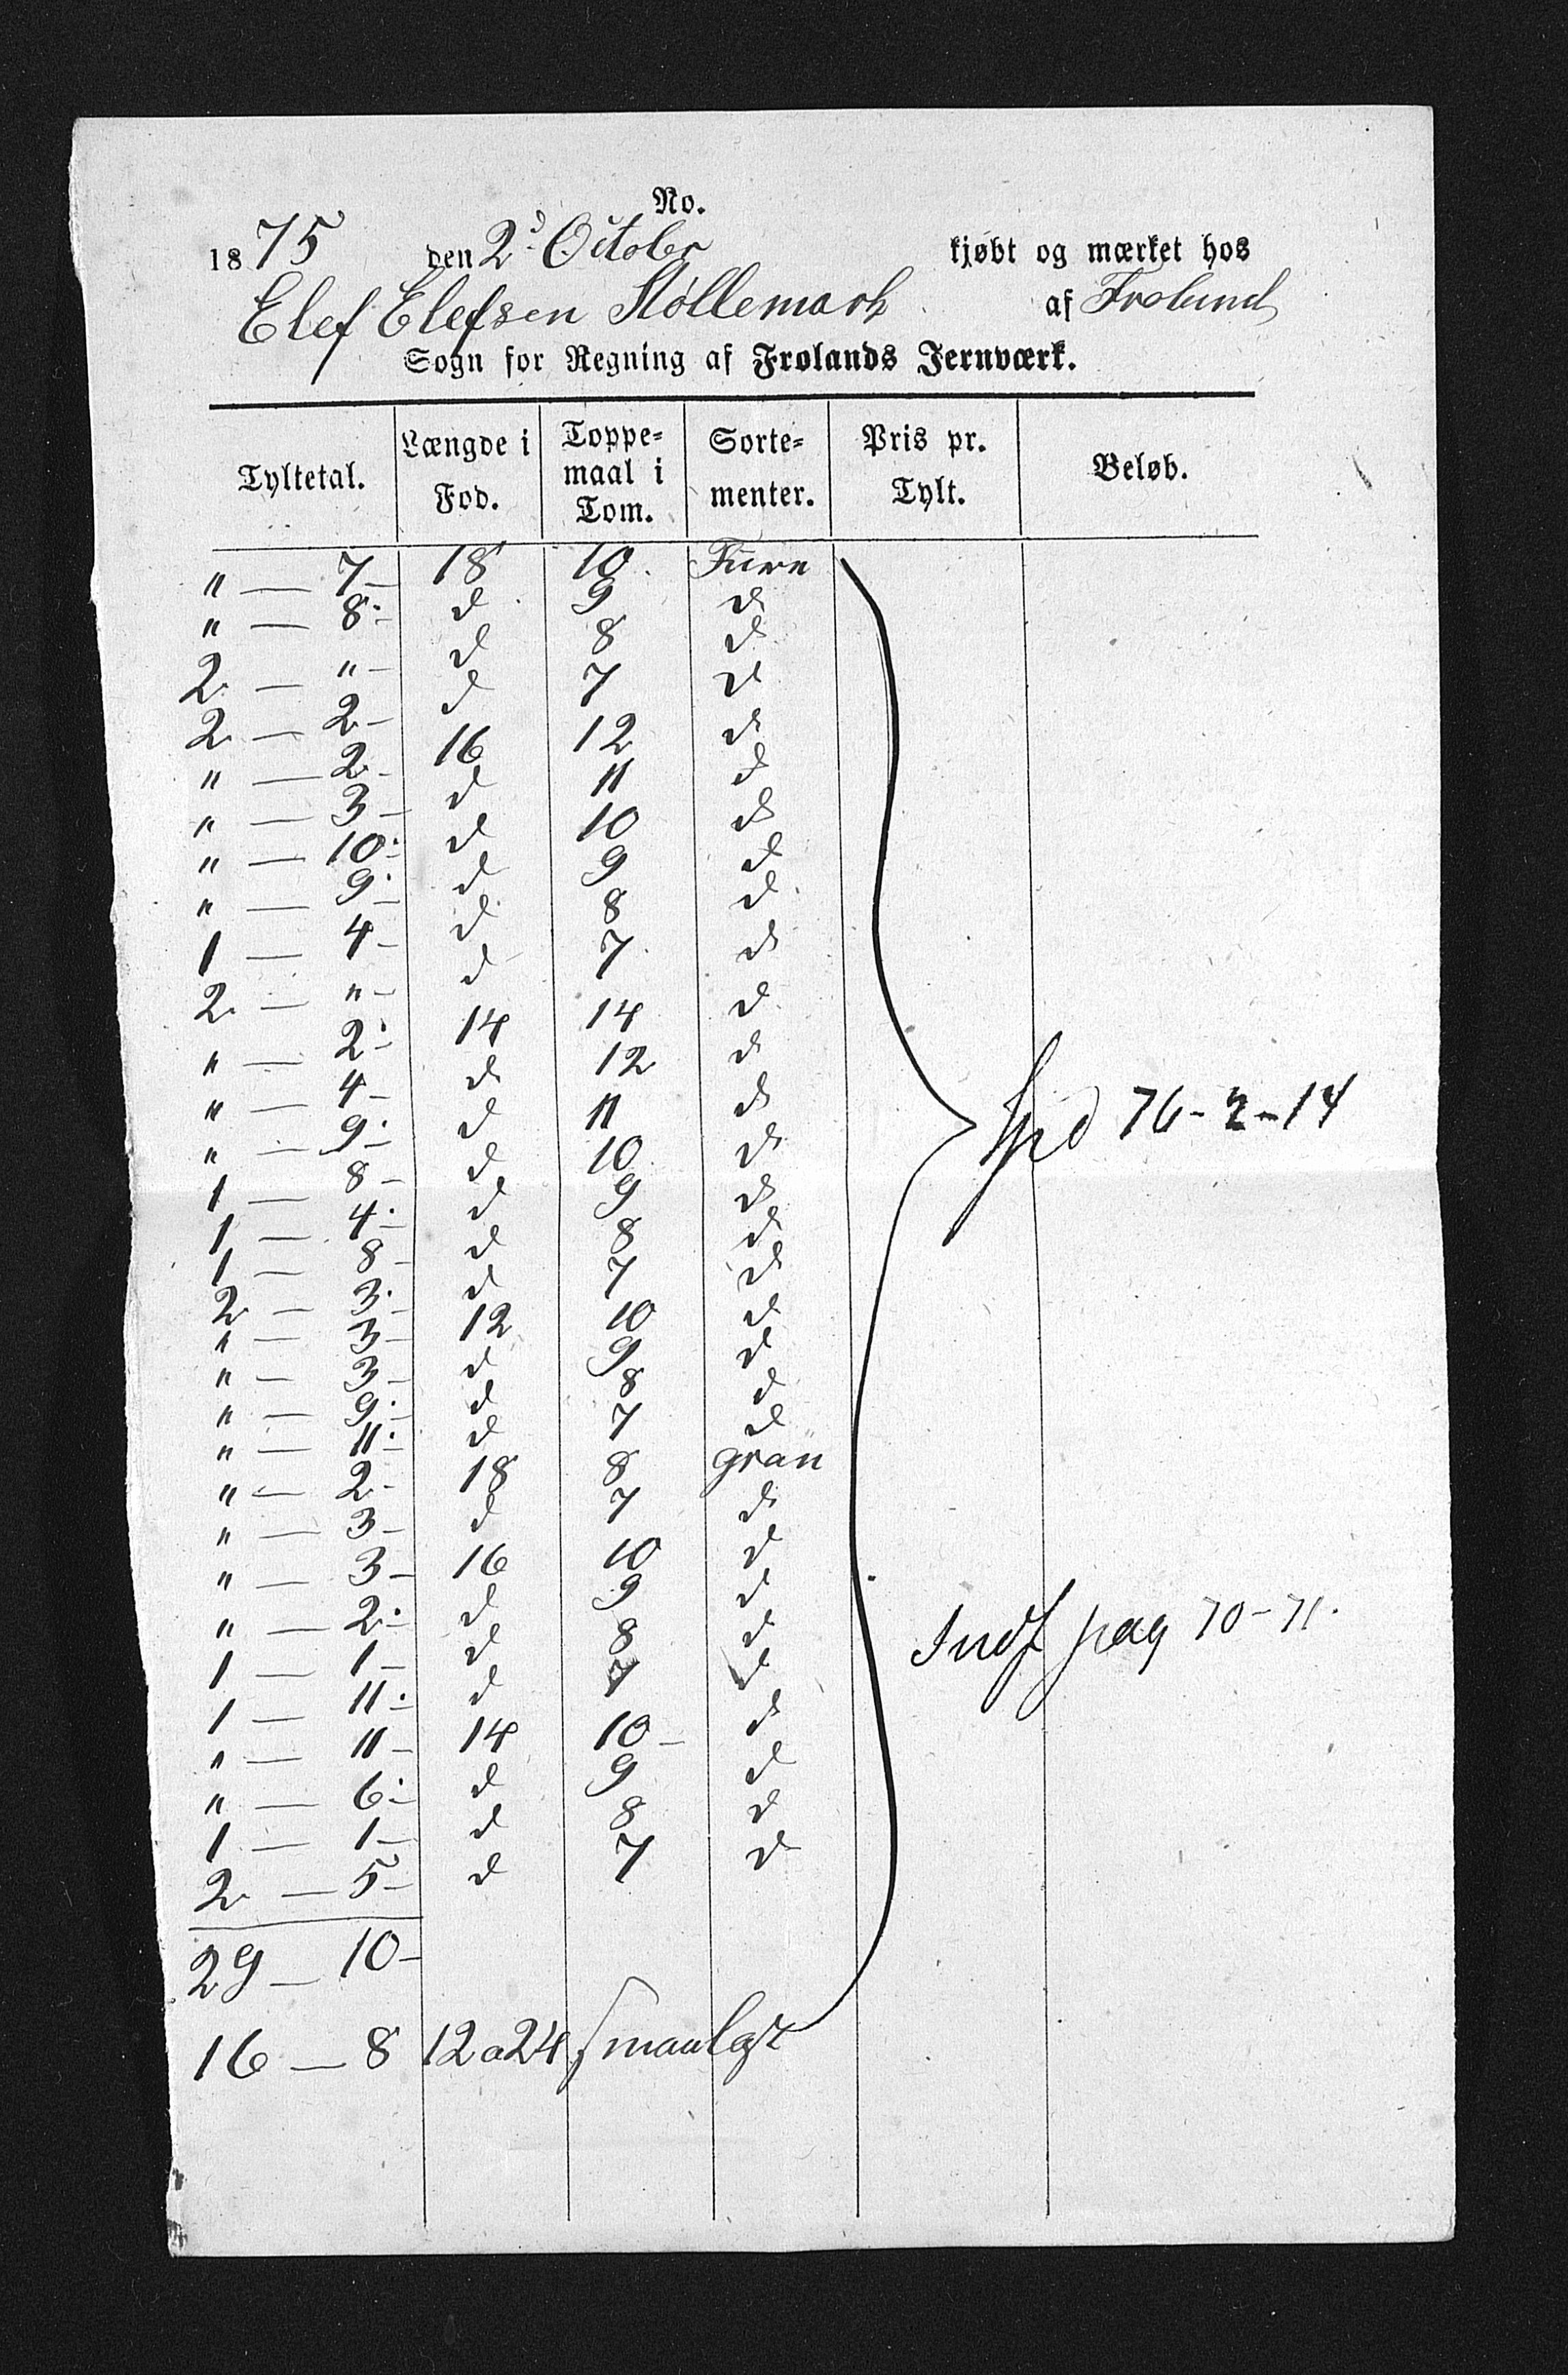 No.
1875 den 2d October kjøbt og mærket hos
Elef Elefsen Støllemark af Froland
Sogn for Regning af Frolands Jernværk.
Tyltetal. Længde i Fod. Toppe-maal i Tom. Sorte-menter. Pris pr. Tylt. Beløb.
" — 7 — 18 10 Furu
" — 8 - d 9 d
2 — " - d 8 d
2 — 2 - d 7 d
" — 2 - 16 12 d
" — 3 - d 11 d
" — 10 - d 10 d
" — 9 - d 9 d
1 — 4 - d 8 d
2 — " - d 7 d
" — 2 - 14 14 d
" — 4 - d 12 d
" — 9 - d 11 d
1 — 8 - d 10 d
1 — 4 - d 9 d
1 — 8 - d 8 d
2 — 3 - d 7 d
" — 3 - 12 10 d
" — 3 - d 9 d
" — 9 - d 8 d
" — 11 - d 7 d
" — 2 - 18 8 gran
" — 3 - d 7 d
" — 3 - 16 10 d
" — 2 - d 9 d
1 — 1 - d 8 d
1 — 11 - d 7 d
" — 11 - 14 10 - d
" — 6 - d 9 d
1 — 1 - d 8 d
2 — 5 - d 7 d
29 — 10 -
16 — 8 12 a 24 smaalast
Spd 76 - 2 - 14
Indf pag 70 - 71.